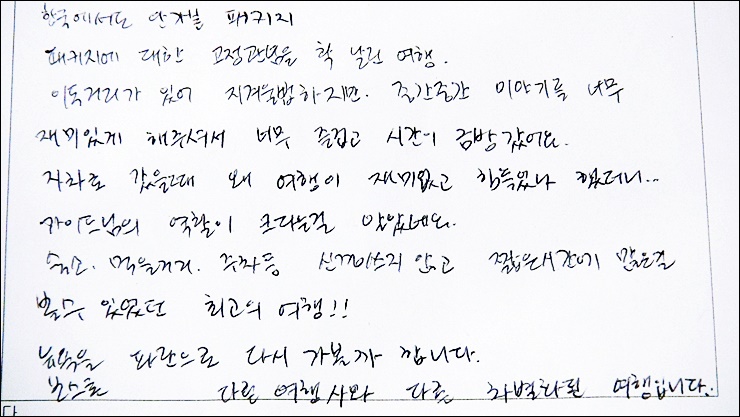 한국에서도 안가본 패키지
패키지에 대한 고정관념을 확 날린 여행.
이동거리가 있어 지겨울법하지만. 중간중간 이야기를 너무
재미있게 해주셔서 너무 즐겁고 시간이 금방 갔어요.
자차로 갔을때 왜 여행이 재미없고 힘들었나 했더니...
가이드님의 역활이 크다는걸 알았네요.
숙소. 먹을거리. 주차등 신경쓰지 않고 짧은시간에 많은걸
볼수 있었던 최고의 여행!!
파란으로 다시 가볼까 합니다.
다른 여행사와 다른 차별화된 여행입니다.
다